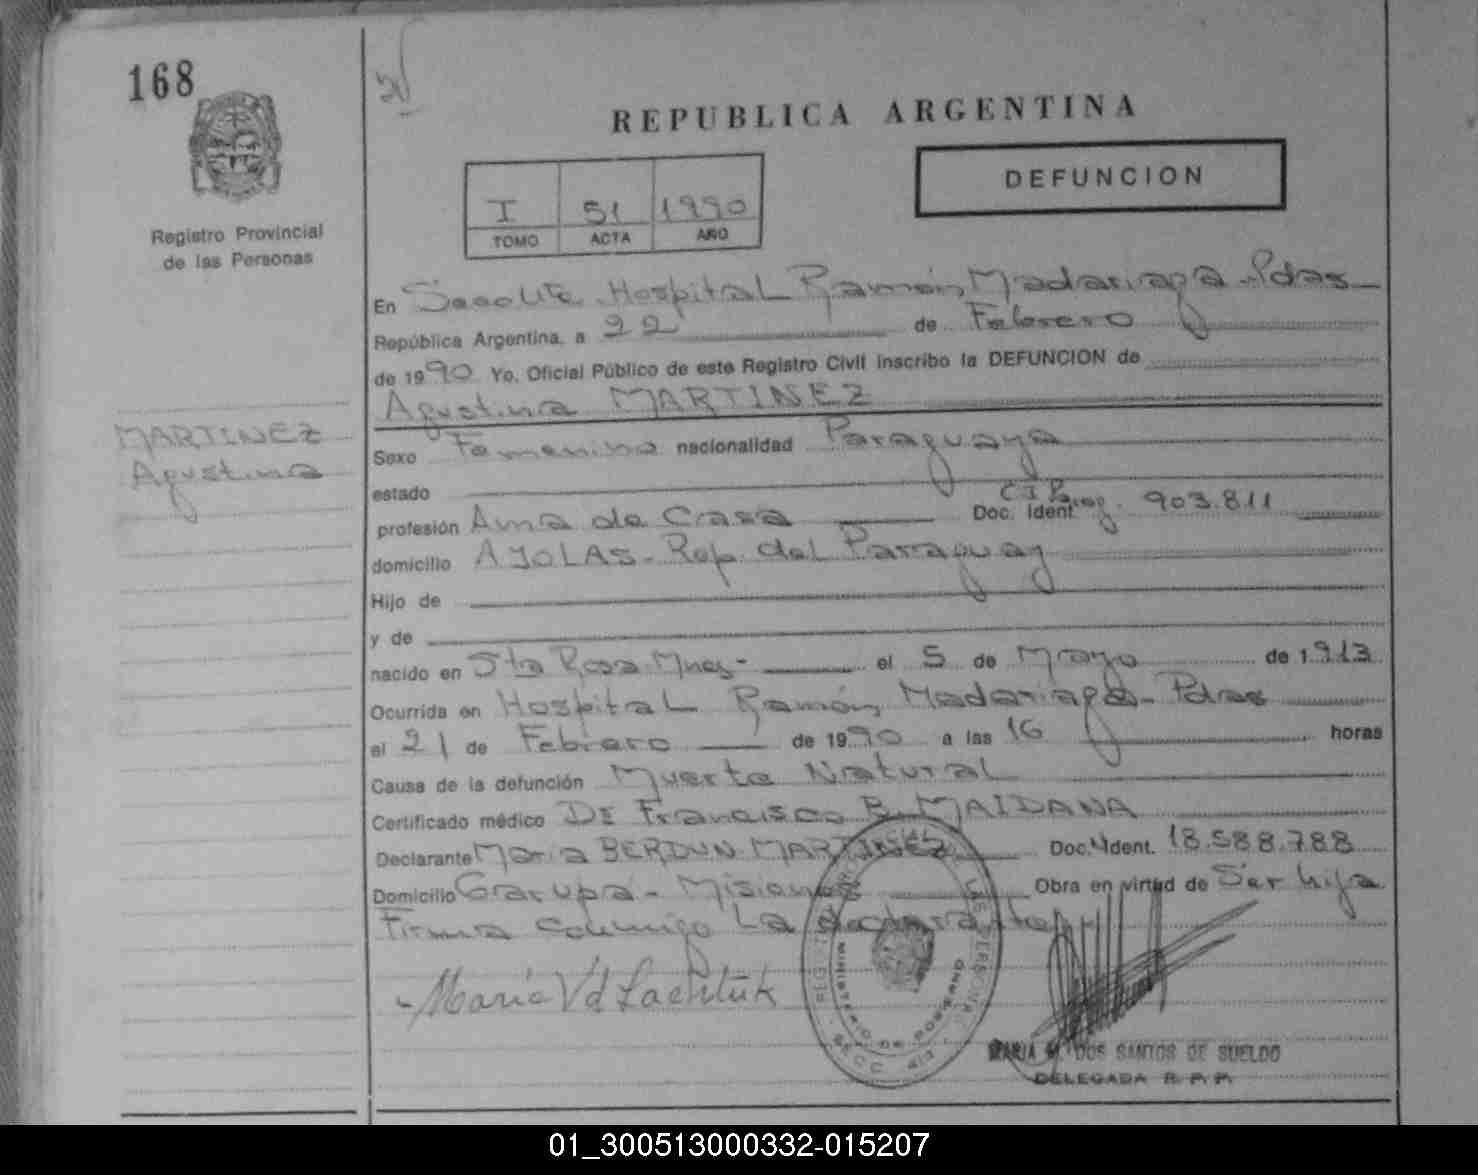 168
REPUBLICA ARGENTINA
DEFUNCION
I 51 1990
TOMO ACTA AÑO
Registro Provincial
de las Personas
En Hospital Ramón Madariaga - Pdas
República Argentina, a 22 de Febrero
de 1990 Yo, Oficial Público de este Registro Civil inscribo la DEFUNCION de
Agustina MARTINEZ
MARTINEZ
Agustina
Sexo Femenino nacionalidad Paraguaya
estado
profesión Ama de Casa Doc. Ident. C.I. Parag. 903.811
domicilio AYOLAS - Rep. del Paraguay
Hijo de
y de
nacido en Sta Rosa Mnes - el 5 de Mayo de 1913
Ocurrida en Hospital Ramón Madariaga - Pdas
el 21 de Febrero de 1990 a las 16 horas
Causa de la defunción Muerte Natural
Certificado médico Dr Francisco B. MAIDANA
Declarante Maria BERDUN MARTINEZ Doc. Ident. 18.588.788
Domicilio Garupá - Misiones Obra en virtud de Ser hija
Firma conmigo La declarante
Maria Vd Lachtuk
MARIA M. DOS SANTOS DE SUELDO
DELEGADA R. P. P.
01_300513000332-015207